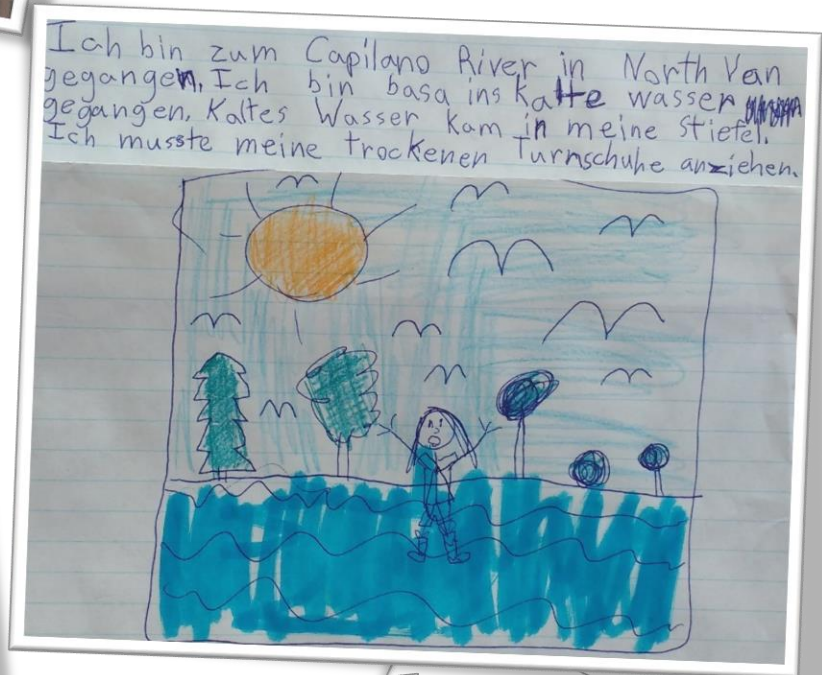 Ich bin zum Capilano River in North Van
gegangen. Ich bin basa ins kalte wasser
gegangen. Kaltes Wasser kam in meine Stiefel.
Ich musste meine trockenen Turnschuhe anziehen.